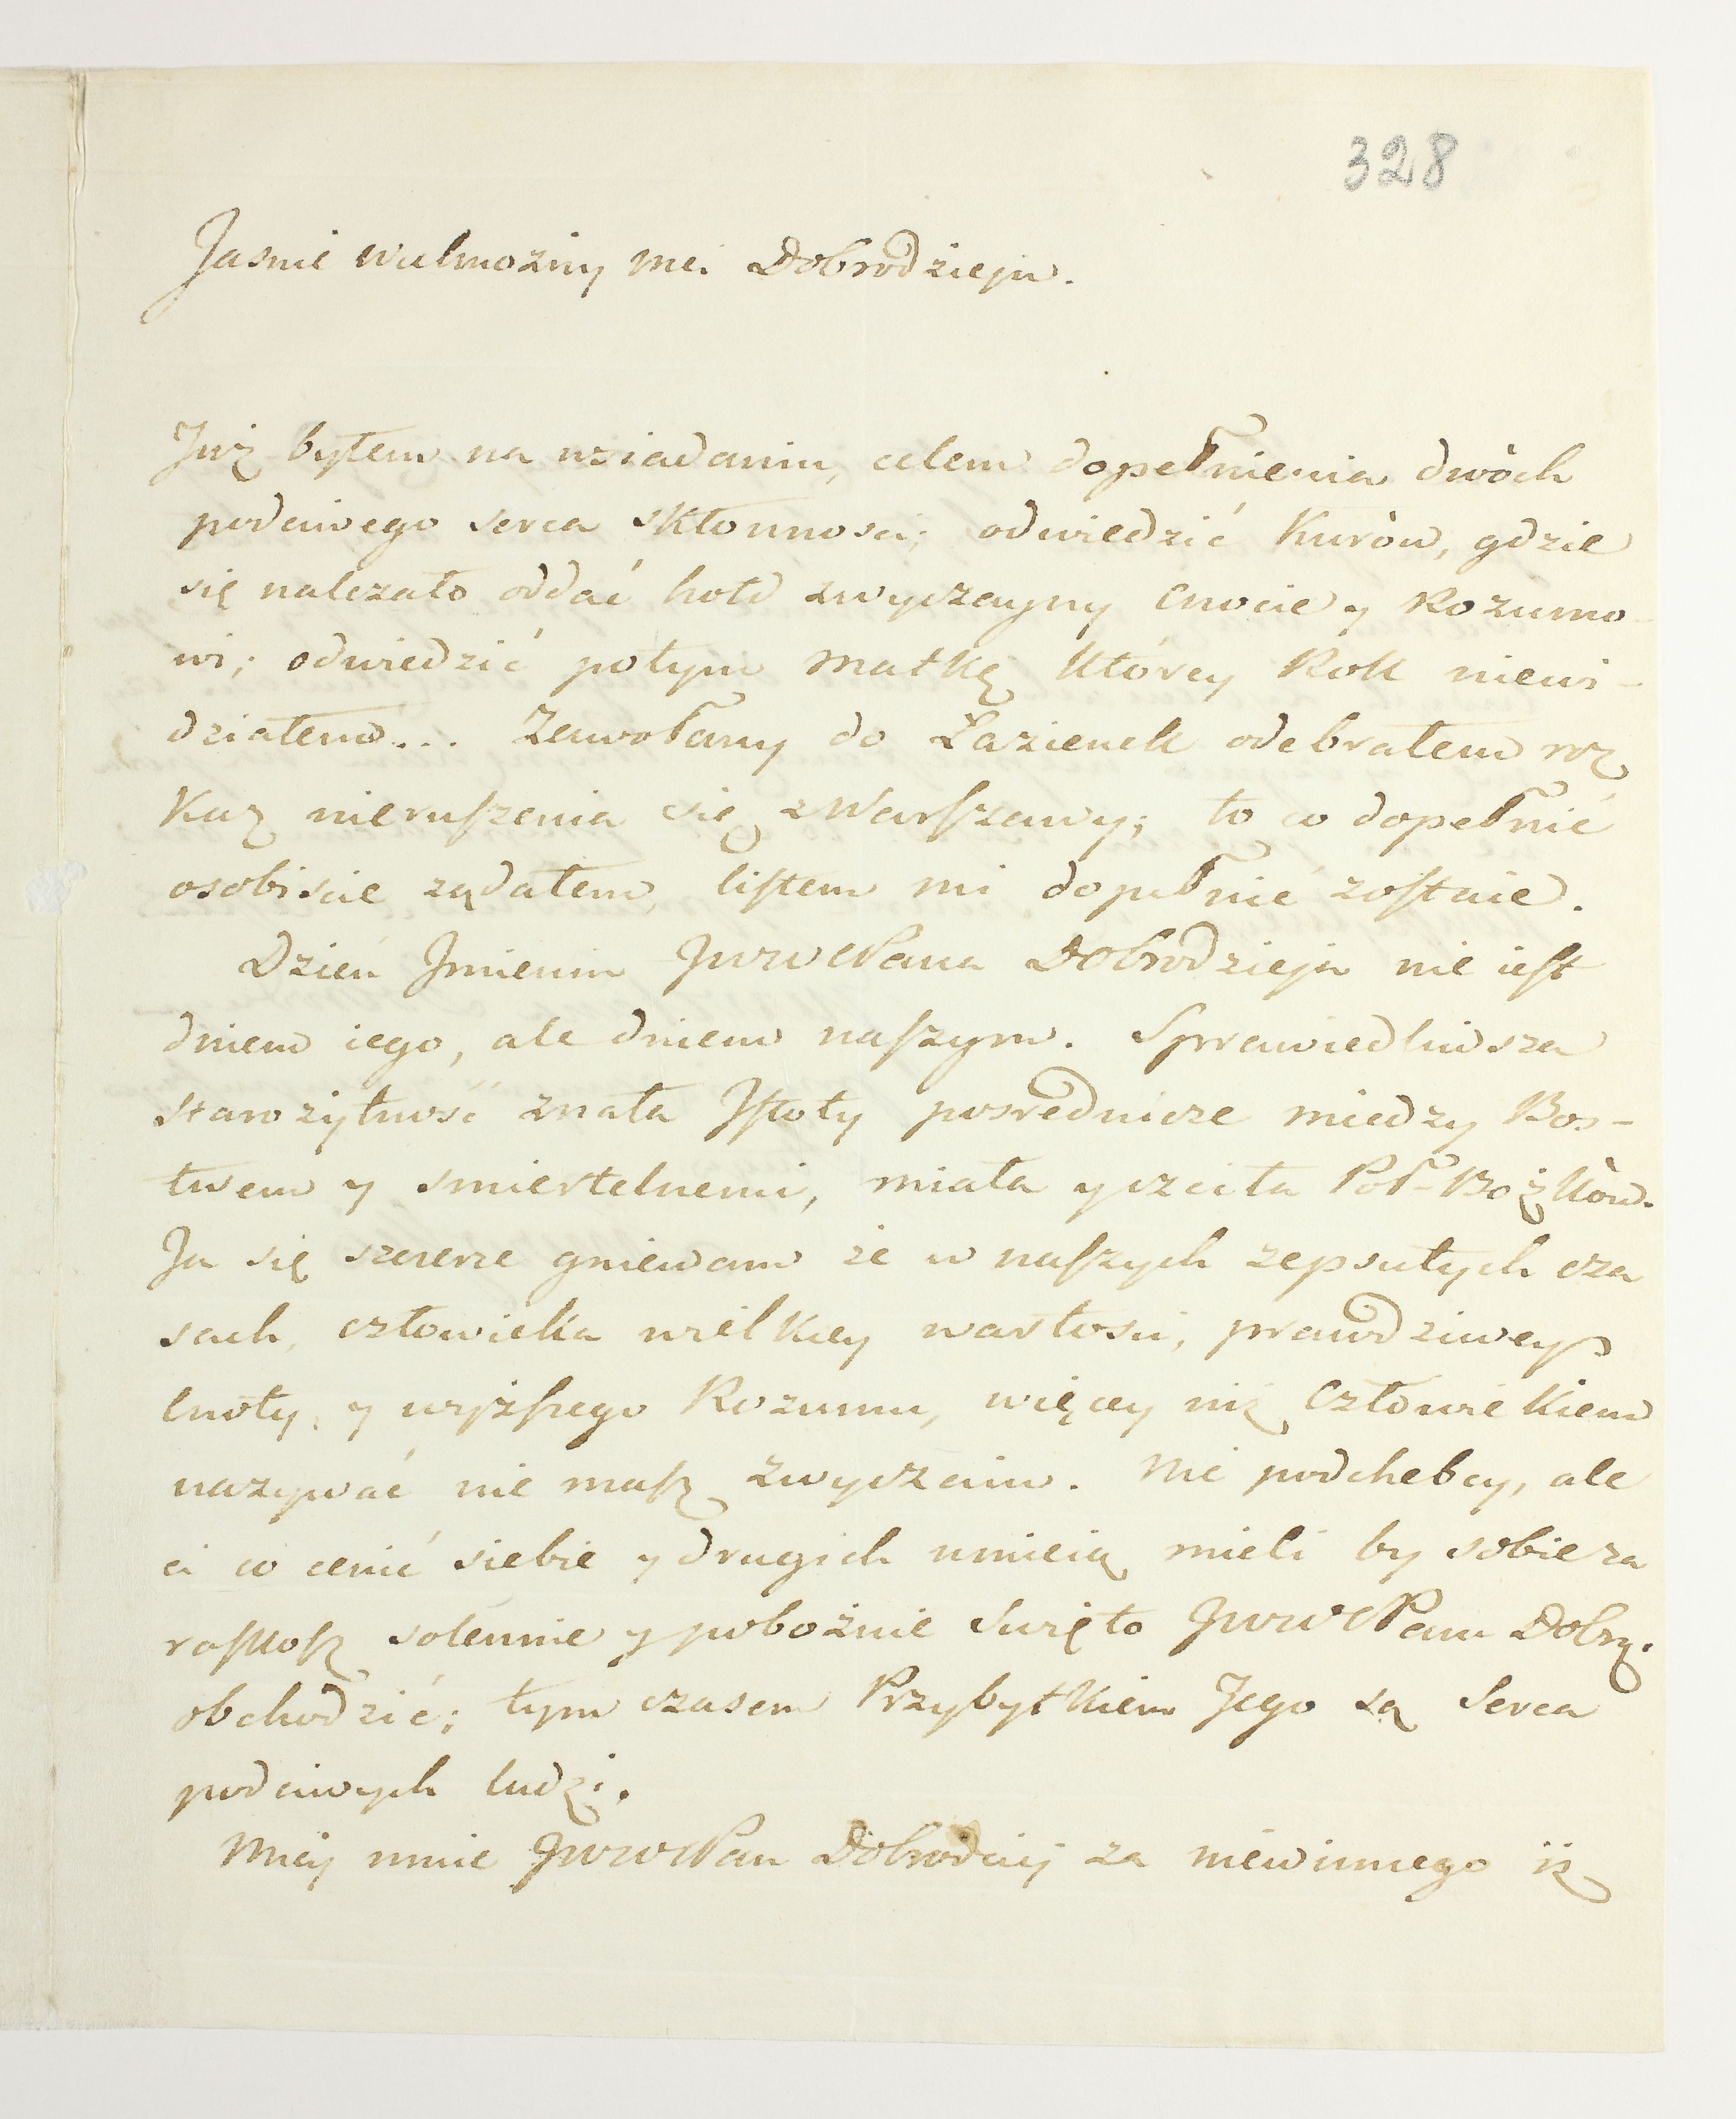 328
Jasnie wielmozny Mci Dobrodzieju.
Już byłem na wsiadaniu, celem dopełnienia dwóch
poćciwego serca skłonnosci; odwiedzić Kurów, gdzie
się należało oddać hołd zwyczayny Cnocie y Rozumo-
wi; odwiedzić potym Matkę którey Rok niewi-
działem... Zawołany do Łazienek odebrałem roz
kaz nieruszenia się z Warszawy; to co dopełnić
osobiscie ządałem, listem mi dopełnić zostaie.
Dzień Jmienin JWWMPana Dobrodzieja nie iest
dniem iego, ale dniem naszym. Sprawiedliwsza
starożytność znała Jstoty posrednicze miedzy Bos-
twem y smiertelnemi, miała y czciła Poł-Bożków.
Ja się szczerze gniewam że w naszych zepsutych cza
sach, człowieka wielkiey wartosci, prawdziwey
Cnoty, y wyższego Rozumu, więcey niż Człowiekiem
nazywać nie masz zwyczaiu. Nie podchebcy, ale
ci co cenić siebie y drugich umieią mieli by sobie za
roskosz solennie y pobożnie Swięto JWWMPana Dobrz.
obchodzić; tym czasem Przybytkiem Jego są Serca
poćciwych ludzi.
Miey mnie JWWMPan Dobrodziej za niewinnego iż